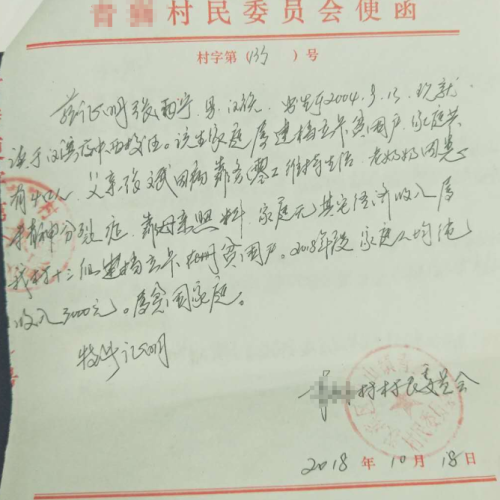 村民委员会便函
村字第（135）号
兹证明张西宁，男，汉族，出生于2004.3.13，现就
读于汉滨初中西校区。该生家庭属建档立卡贫困户，家庭共
有4口人，父亲张斌因病靠务零工维持生活，老奶奶因患
精神分裂症，靠母亲照料，家庭无其它经济收入，属
我村十三组建档立卡贫困户。2018年段家庭人均纯
收入3000元。属贫困家庭。
特此证明
村村民委员会
2018年10月18日